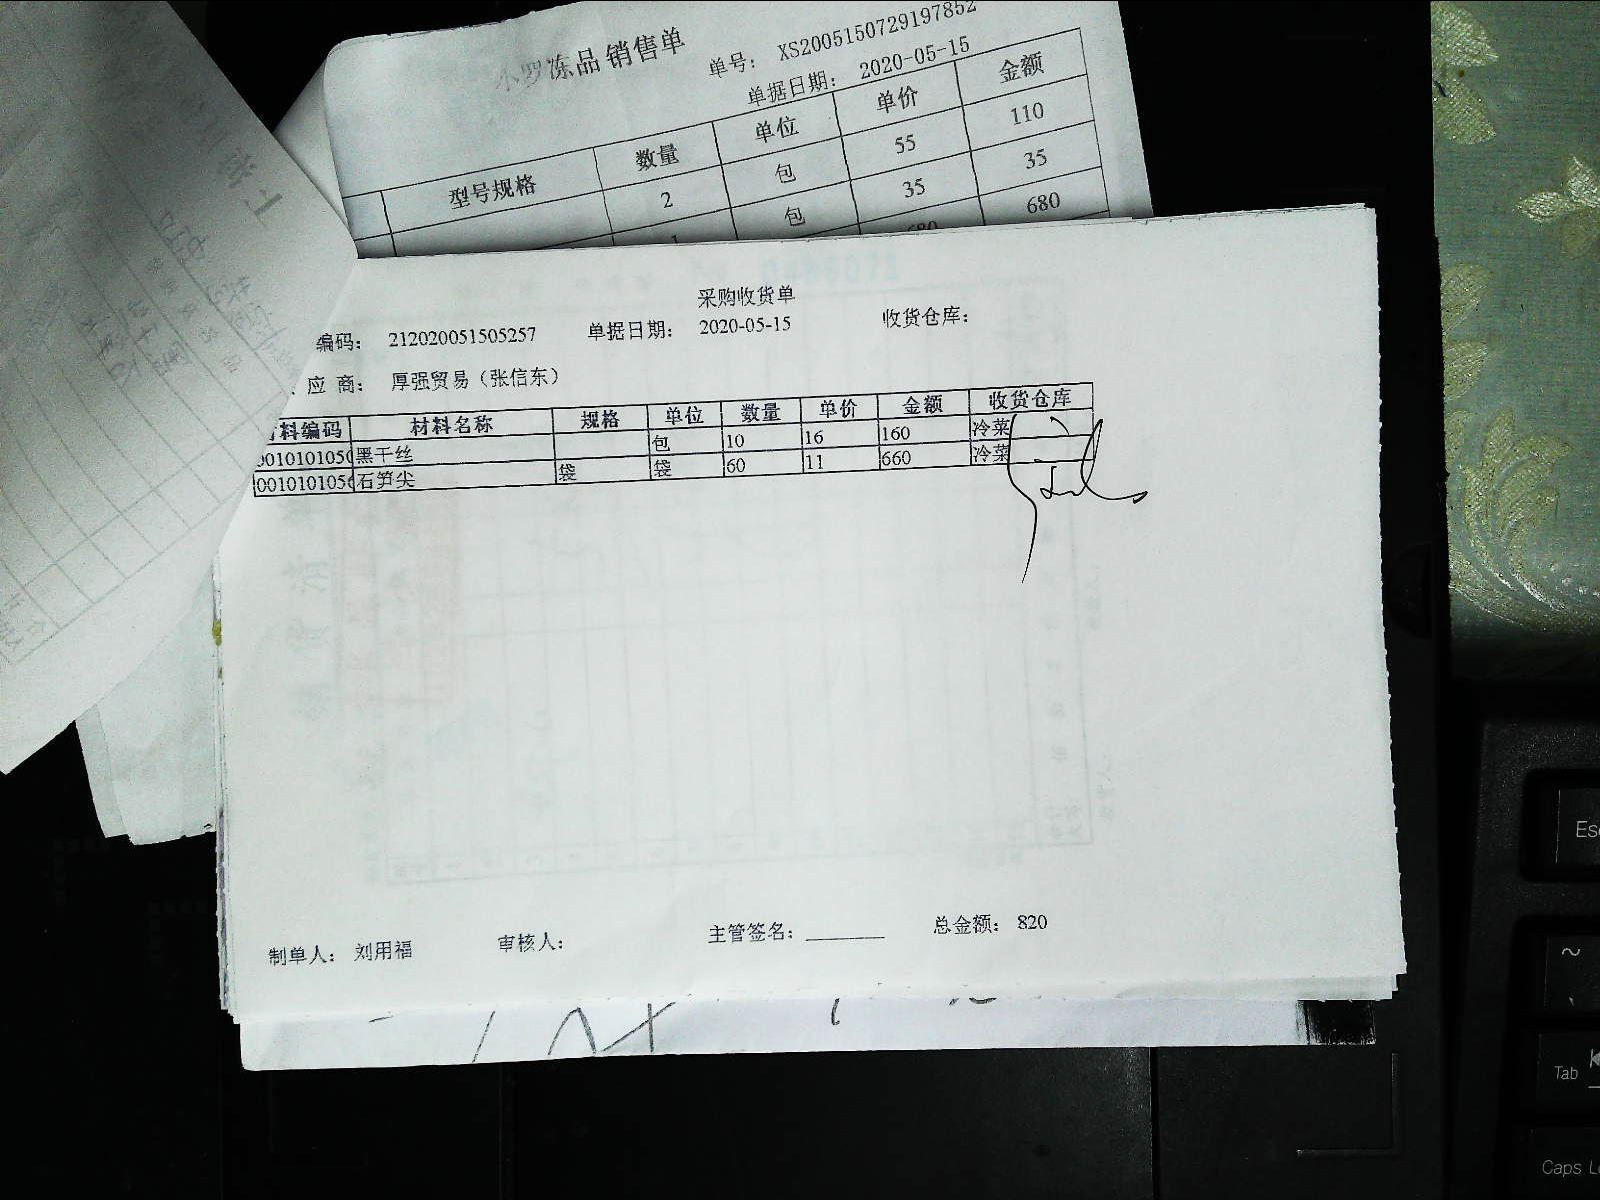 小罗冻品销售单
单号： XS2005150729197852
单据日期： 2020-05-15
型号规格 数量 单位 单价 金额
2 包 55 110
1 包 35 35
680 680
采购收货单
编码： 212020051505257 单据日期： 2020-05-15 收货仓库：
应 商： 厚强贸易（张信东）
料编码 材料名称 规格 单位 数量 单价 金额 收货仓库
001010105 黑干丝 包 10 16 160 冷菜
001010105 石笋尖 袋 袋 60 11 660 冷菜
制单人： 刘用福 审核人： 主管签名： 总金额： 820
Esc
~
Tab
Caps L